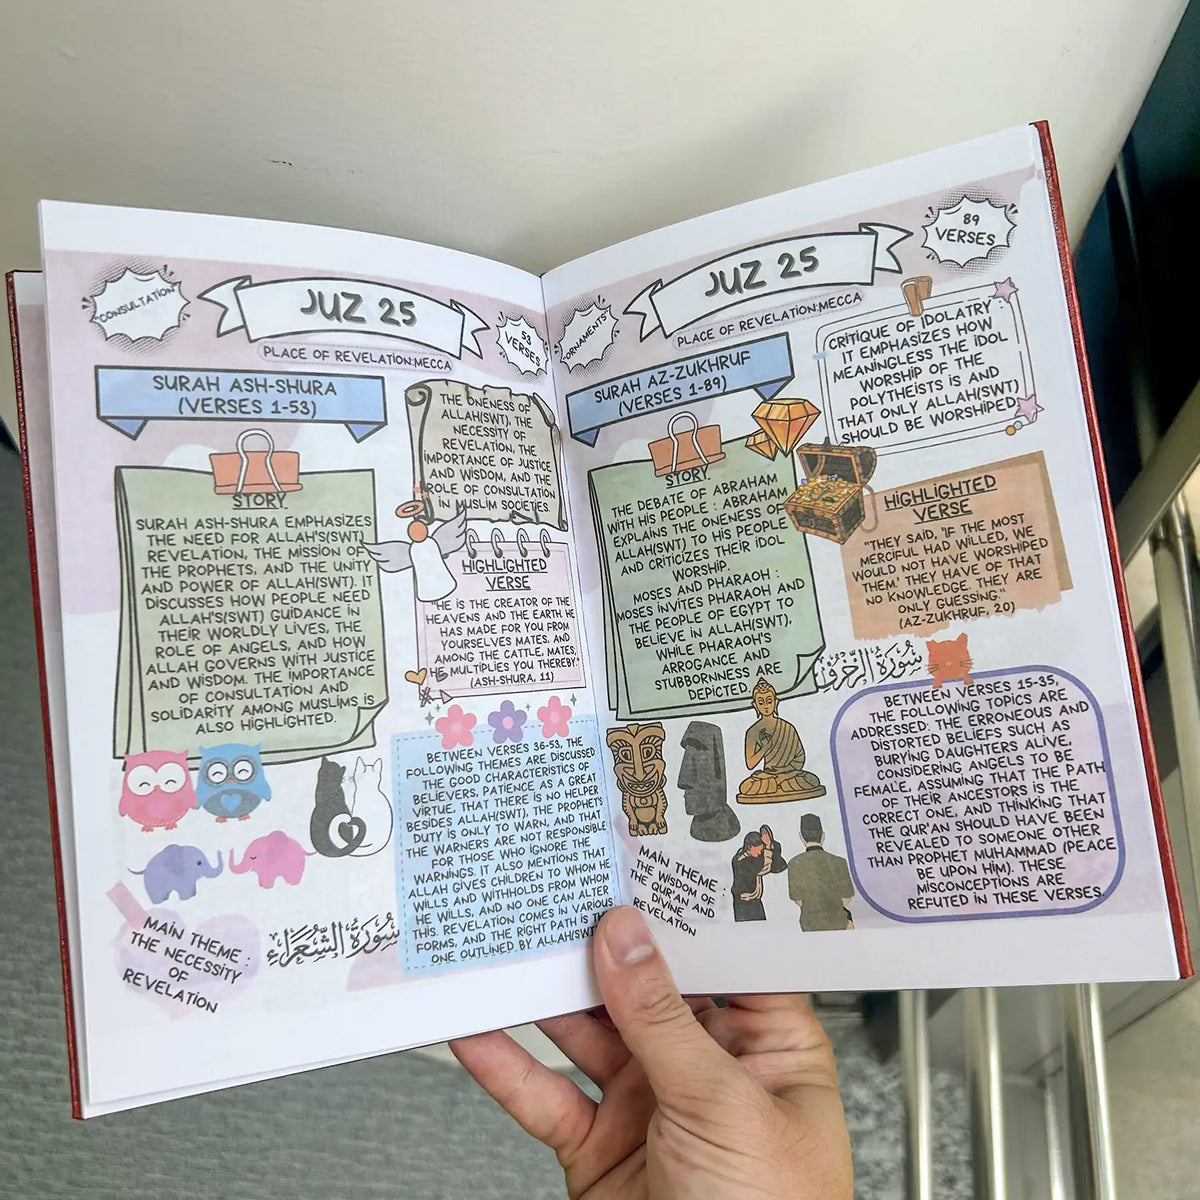 CONSULTATION
JUZ 25
53
VERSES
PLACE OF REVELATION:MECCA
SURAH ASH-SHURA
(VERSES 1-53)
STORY
SURAH ASH-SHURA EMPHASIZES
THE NEED FOR ALLAH'S(SWT)
REVELATION, THE MISSION OF
THE PROPHETS, AND THE UNITY
AND POWER OF ALLAH(SWT). IT
DISCUSSES HOW PEOPLE NEED
ALLAH'S(SWT) GUIDANCE IN
THEIR WORLDLY LIVES, THE
ROLE OF ANGELS, AND HOW
ALLAH GOVERNS WITH JUSTICE
AND WISDOM. THE IMPORTANCE
OF CONSULTATION AND
SOLIDARITY AMONG MUSLIMS IS
ALSO HIGHLIGHTED.
MAIN THEME :
THE NECESSITY
OF
REVELATION
سُورَةُ الشُّعَرَاء
THE ONENESS OF
ALLAH(SWT), THE
NECESSITY OF
REVELATION, THE
IMPORTANCE OF JUSTICE
AND WISDOM, AND THE
ROLE OF CONSULTATION
IN MUSLIM SOCIETIES.
HIGHLIGHTED
VERSE
"HE IS THE CREATOR OF THE
HEAVENS AND THE EARTH. HE
HAS MADE FOR YOU FROM
YOURSELVES MATES, AND
AMONG THE CATTLE, MATES,
HE MULTIPLIES YOU THEREBY."
(ASH-SHURA, 11)
BETWEEN VERSES 36-53, THE
FOLLOWING THEMES ARE DISCUSSED
THE GOOD CHARACTERISTICS OF
BELIEVERS, PATIENCE AS A GREAT
VIRTUE, THAT THERE IS NO HELPER
BESIDES ALLAH(SWT), THE PROPHET'S
DUTY IS ONLY TO WARN, AND THAT
THE WARNERS ARE NOT RESPONSIBLE
FOR THOSE WHO IGNORE THE
WARNINGS. IT ALSO MENTIONS THAT
ALLAH GIVES CHILDREN TO WHOM HE
WILLS AND WITHHOLDS FROM WHOM
HE WILLS, AND NO ONE CAN ALTER
THIS. REVELATION COMES IN VARIOUS
FORMS, AND THE RIGHT PATH IS
ONE OUTLINED BY ALLAH(SWT)
ORNAMENTS
JUZ 25
89
VERSES
PLACE OF REVELATION:MECCA
SURAH AZ-ZUKHRUF
(VERSES 1-89)
STORY
THE DEBATE OF ABRAHAM
WITH HIS PEOPLE : ABRAHAM
EXPLAINS THE ONENESS OF
ALLAH(SWT) TO HIS PEOPLE
AND CRITICIZES THEIR IDOL
WORSHIP.
MOSES AND PHARAOH :
MOSES INVITES PHARAOH AND
THE PEOPLE OF EGYPT TO
BELIEVE IN ALLAH(SWT),
WHILE PHARAOH'S
ARROGANCE AND
STUBBORNNESS ARE
DEPICTED.
MAIN THEME :
THE WISDOM OF
THE QUR'AN AND
DIVINE
REVELATION
CRITIQUE OF IDOLATRY :
IT EMPHASIZES HOW
MEANINGLESS THE IDOL
WORSHIP OF THE
POLYTHEISTS IS AND
THAT ONLY ALLAH(SWT)
SHOULD BE WORSHIPED
HIGHLIGHTED
VERSE
"THEY SAID, 'IF THE MOST
MERCIFUL HAD WILLED, WE
WOULD NOT HAVE WORSHIPED
THEM.' THEY HAVE OF THAT
NO KNOWLEDGE. THEY ARE
ONLY GUESSING."
(AZ-ZUKHRUF, 20)
سُورَةُ الزُّخْرُفِ
BETWEEN VERSES 15-35,
THE FOLLOWING TOPICS ARE
ADDRESSED: THE ERRONEOUS AND
DISTORTED BELIEFS SUCH AS
BURYING DAUGHTERS ALIVE,
CONSIDERING ANGELS TO BE
FEMALE, ASSUMING THAT THE PATH
OF THEIR ANCESTORS IS THE
CORRECT ONE, AND THINKING THAT
THE QUR'AN SHOULD HAVE BEEN
REVEALED TO SOMEONE OTHER
THAN PROPHET MUHAMMAD (PEACE
BE UPON HIM). THESE
MISCONCEPTIONS ARE
REFUTED IN THESE VERSES.